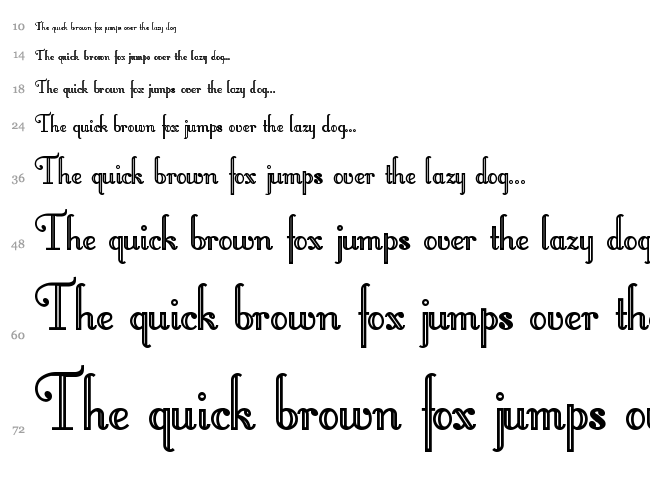 10 The quick brown fox jumps over the lazy dog
14 The quick brown fox jumps over the lazy dog...
18 The quick brown fox jumps over the lazy dog...
24 The quick brown fox jumps over the lazy dog...
36 The quick brown fox jumps over the lazy dog...
48 The quick brown fox jumps over the lazy dog
60 The quick brown fox jumps over th
72 The quick brown fox jumps ov